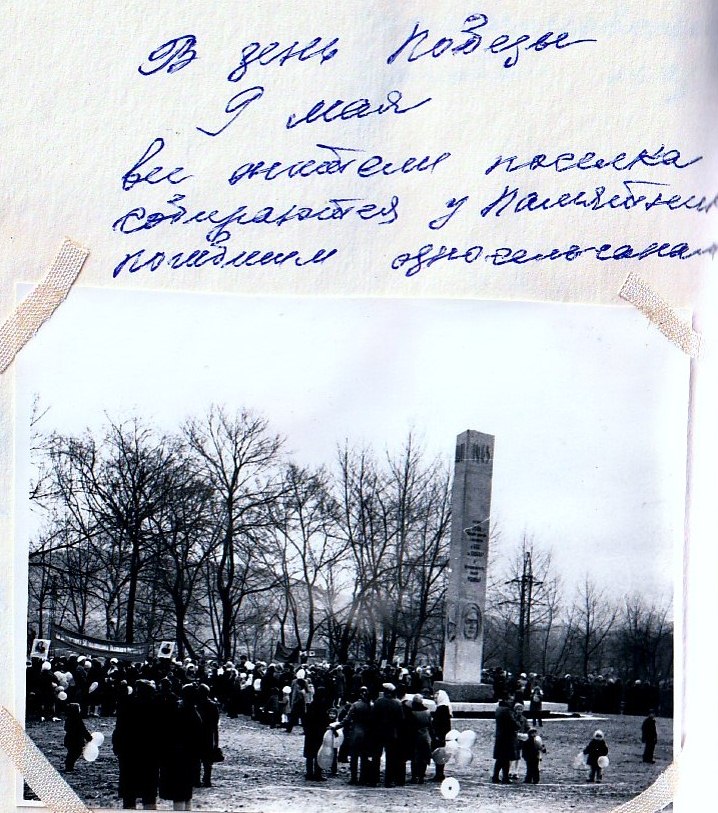 В день Победы
9 мая
все жители поселка
собираются у Памятник
погибшим односельчанам